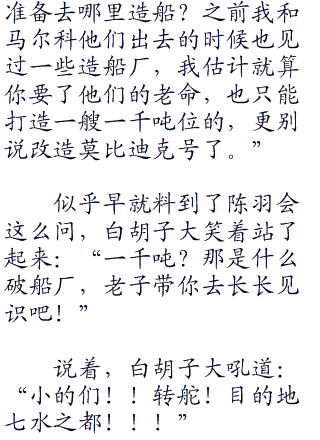 准备去哪里造船？之前我和
马尔科他们出去的时候也见
过一些造船厂，我估计就算
你要了他们的老命，也只能
打造一艘一千吨位的，更别
说改造莫比迪克号了。”
似乎早就料到了陈羽会
这么问，白胡子大笑着站了
起来：“一千吨？那是什么
破船厂，老子带你去长长见
识吧！”
说着，白胡子大吼道：
“小的们！！转舵！目的地
七水之都！！！”